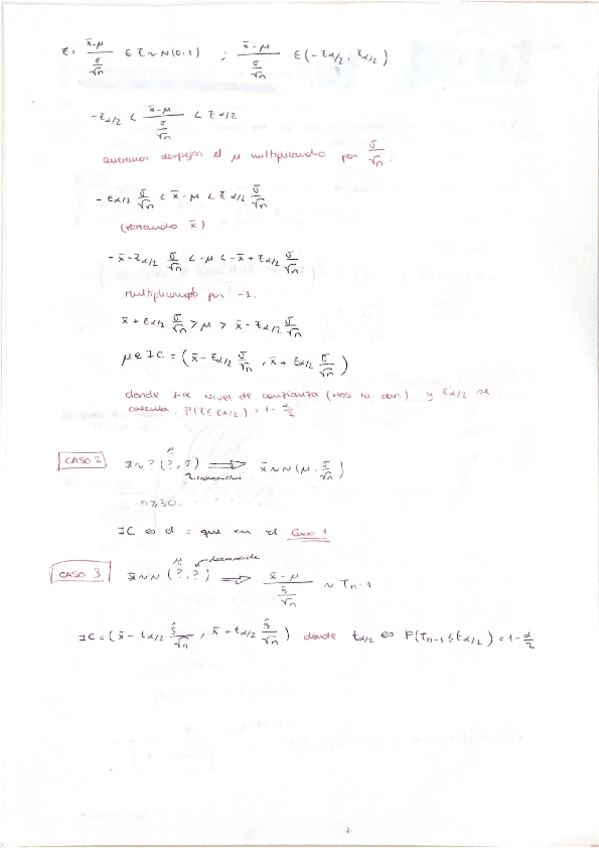 Z = (x̄-μ)/(σ/√n) ∈ Z ~ N(0,1) ; (x̄-μ)/(σ/√n) ∈ (-Zα/2, Zα/2)
-Zα/2 < (x̄-μ)/(σ/√n) < Zα/2
queremos despejar el μ multiplicando por σ/√n.
-Zα/2 σ/√n < x̄-μ < Zα/2 σ/√n
(restando x̄)
-x̄-Zα/2 σ/√n < -μ < -x̄+Zα/2 σ/√n
multiplicando por -1.
x̄+Zα/2 σ/√n > μ > x̄-Zα/2 σ/√n
μ ∈ IC = (x̄-Zα/2 σ/√n, x̄+Zα/2 σ/√n)
donde 1-α nivel de confianza (nos lo dan) y Zα/2 se
calcula. P(Z≤Zα/2) = 1-α/2
μ
CASO 2 x̄ ~ ? (?, σ) ⟹ x̄ ~ N(μ, σ/√n)
n≥30.
IC es el = que en el Caso 1
μ
CASO 3 x̄ ~ N (?, ?) ⟹ (x̄-μ)/(ŝ/√n) ~ Tn-1
IC = (x̄-tα/2 ŝ/√n, x̄+tα/2 ŝ/√n) donde tα/2 es P(Tn-1≤tα/2) = 1-α/2
2